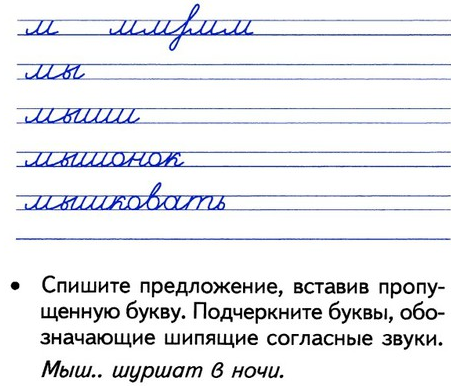 м ммгмм
мы
мыши
мышонок
мышковать
• Спишите предложение, вставив пропу-
щенную букву. Подчеркните буквы, обо-
значающие шипящие согласные звуки.
Мыш.. шуршат в ночи.